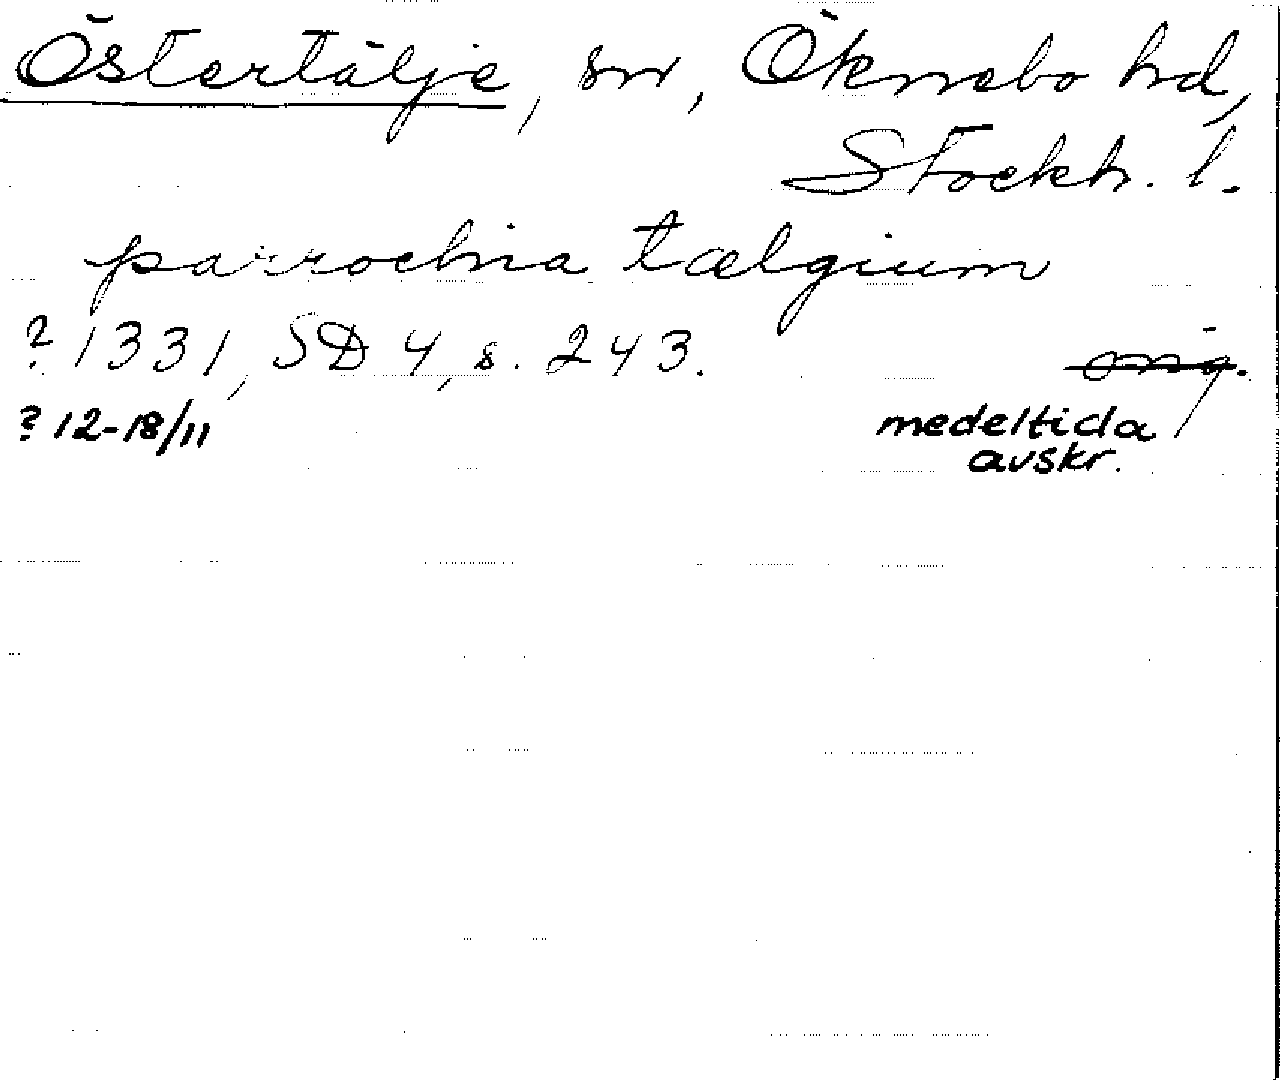 Östertälje, sn, Öknebo hd,
Stockh. l.
parrochia tælgium
? 1331, SD 4, s. 243. orig.
? 12-18/11 medeltida
avskr.